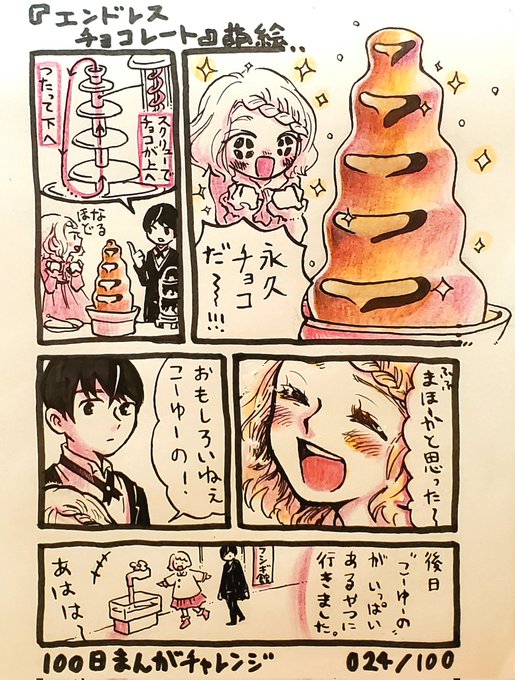 『エンドレス
チョコレート』萌絵‥
永久
チョコ
だ〜〜!!!
スクリューで
チョコが上へ
つたって下へ
なる
ほど
ふふ
まほーかと思った〜
おもしろいねぇ
こーゆーの!
後日
"こーゆーの"
がいっぱい
あるやつに
行きました。
フシギ館
あはは〜
100日まんがチャレンジ
024/100